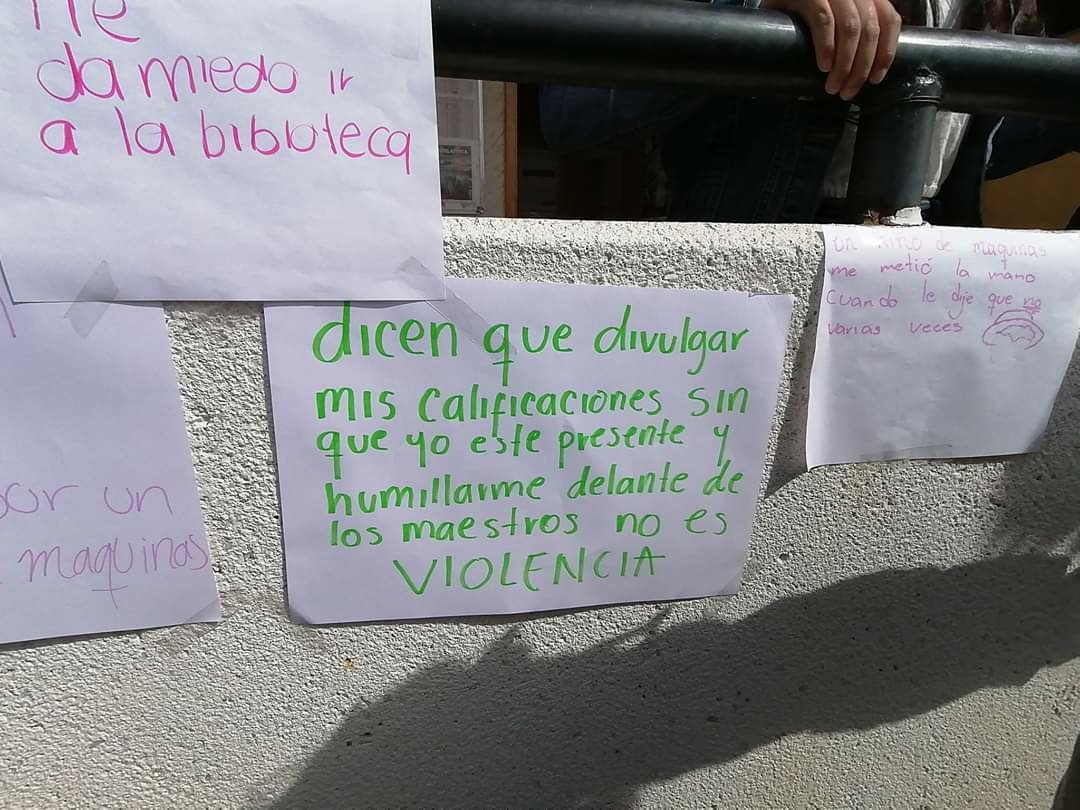 me
da miedo ir
a la bibloteca
por un
maquinas
dicen que divulgar
mis calificaciones sin
que yo este presente y
humillarme delante de
los maestros no es
VIOLENCIA
un niño de maquinas
me metió la mano
Cuando le dije que no
varias veces